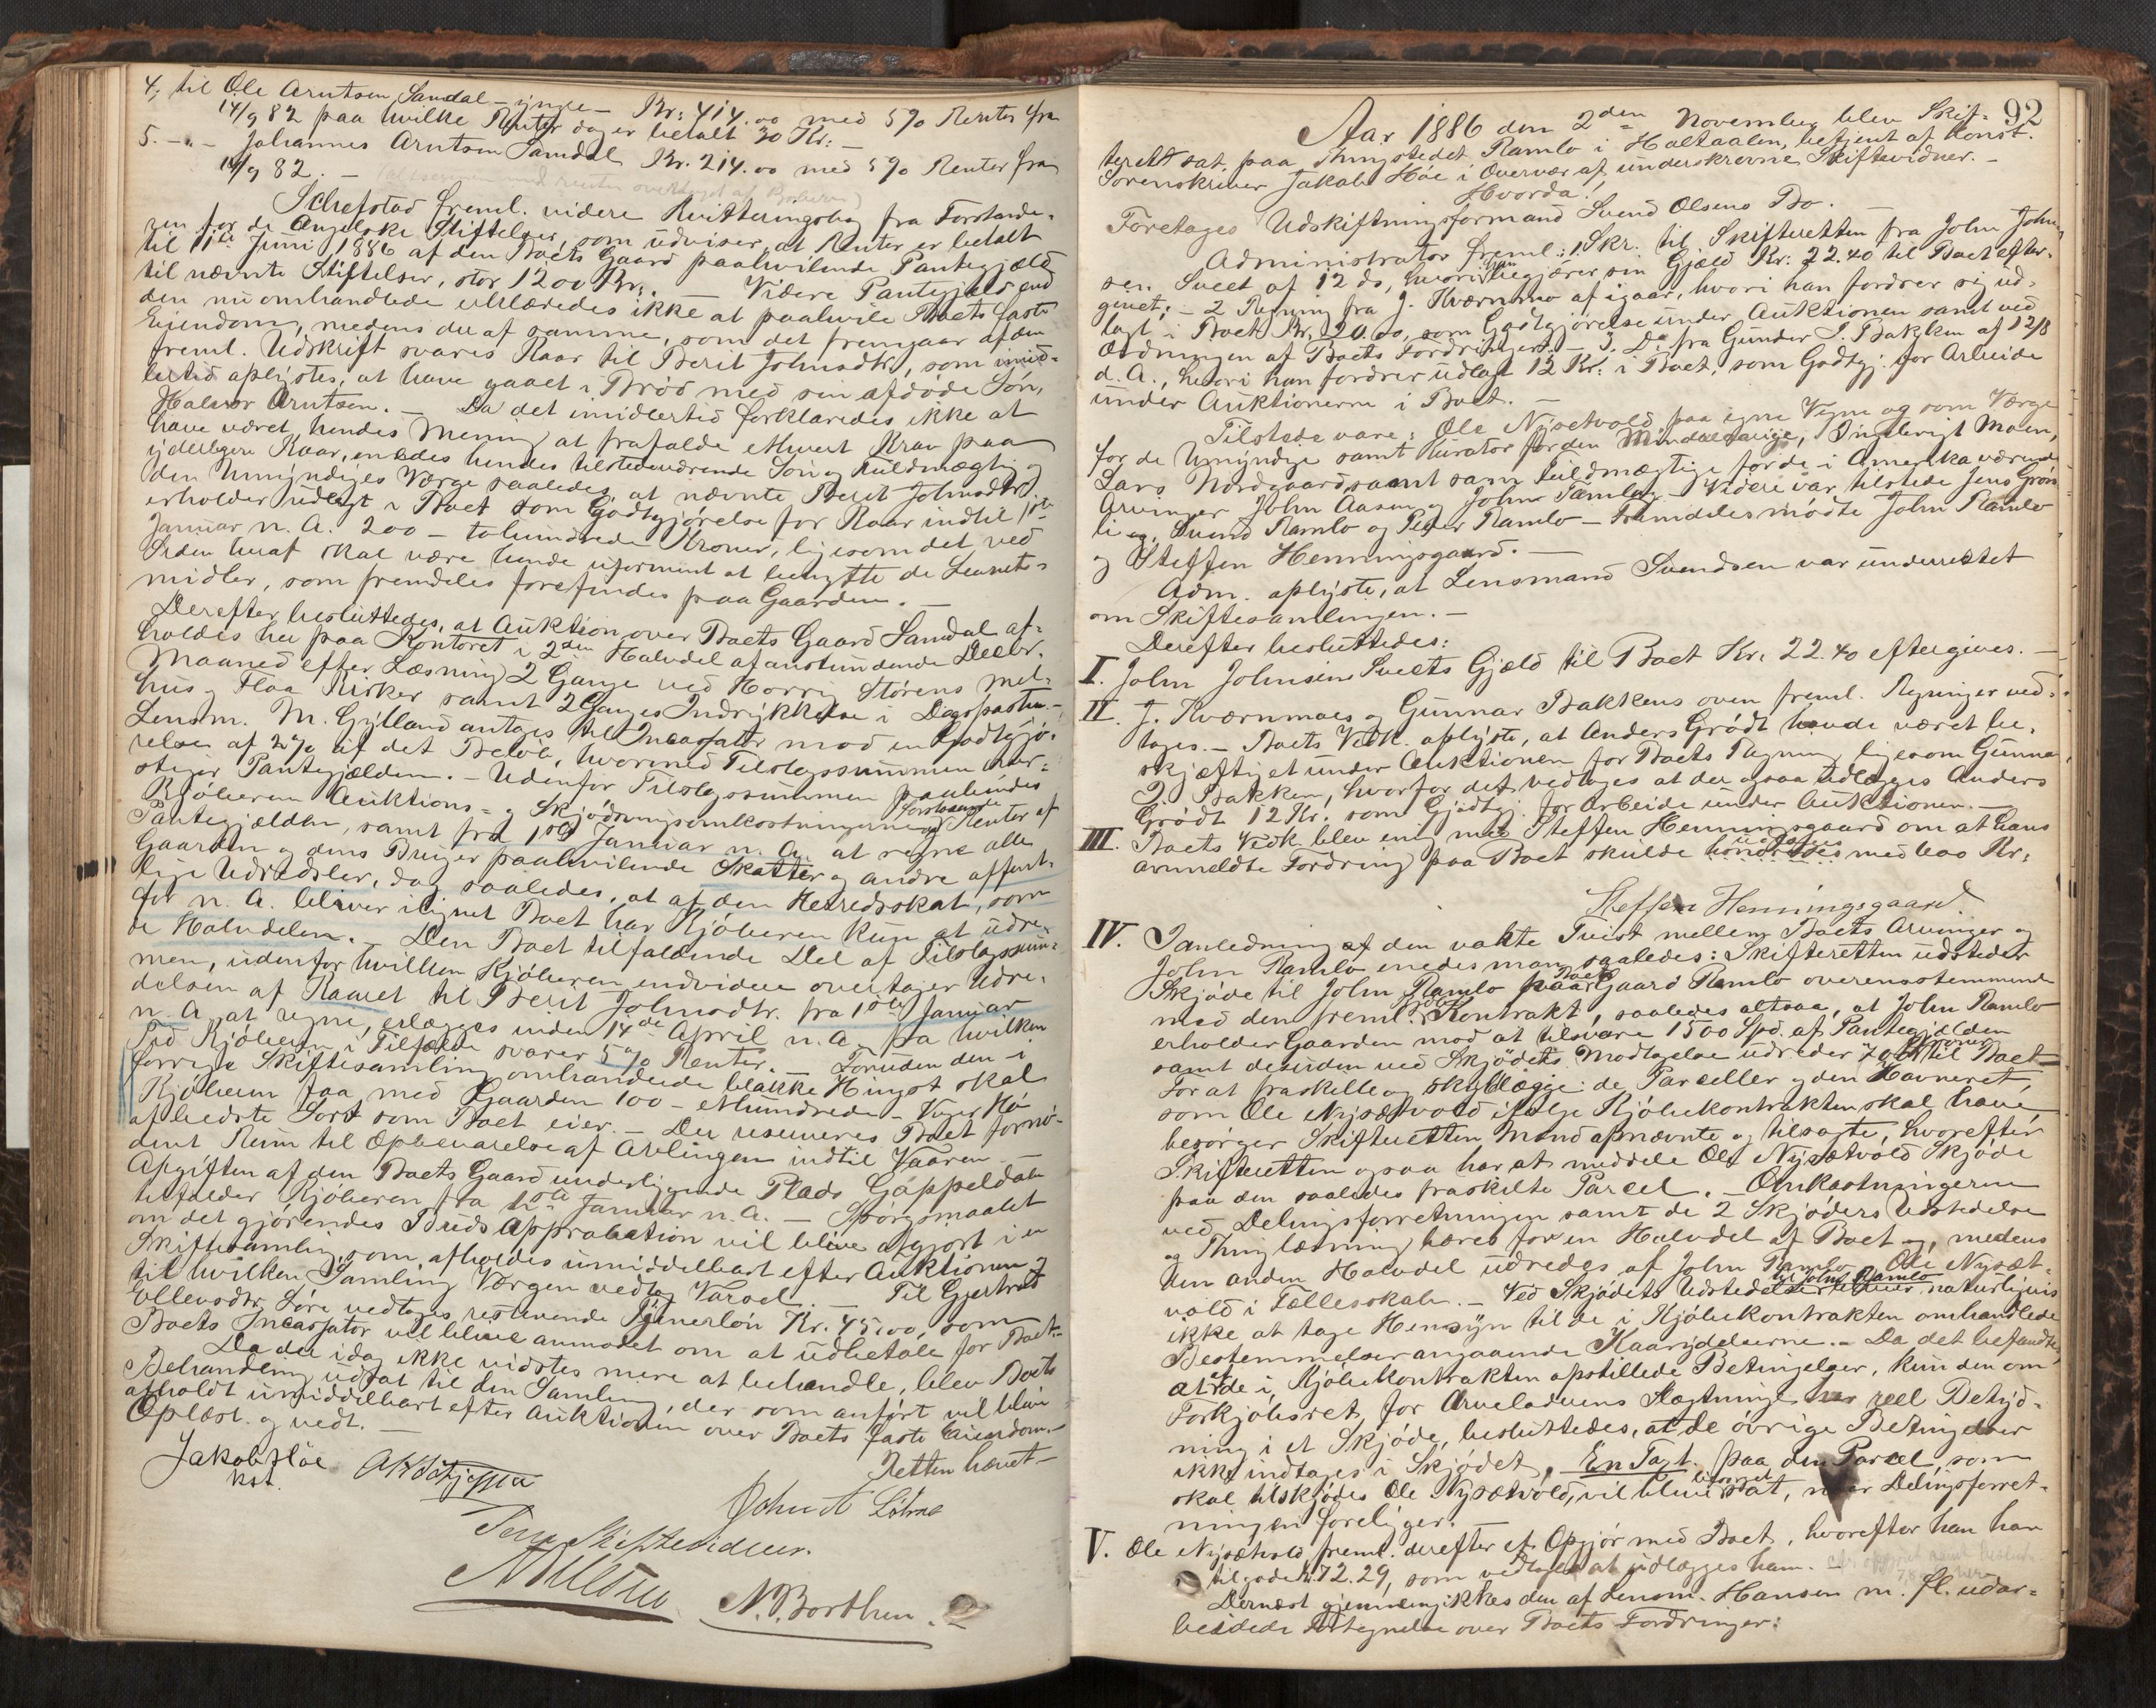 4, til Ole Arntsen Samdal - yngre - Kr: 414.00 med 5% Renter fra
14/9 82 paa hvilke Renter dog er betalt 30 Kr: -
5. -,- Johannes Arntsen Samdal Kr. 214.00 med 5% Renter fra
14/9 82. -
Schefstad freml. videre Kvitteringsbog fra Forstande-
ren for de Angelske Stiftelser, som udviser, at Renter er betalt
til 11te Juni 1886 af den Boets Gaard paahvilende Pantegjæld
til nævnte Stiftelser, stor 1200 Kr. - Videre Pantegjæld end
den nu omhandlede erklæredes ikke at paahvile Boets faste
Eiendom, medens der af samme, som det fremgaar af den
freml. Udskrift svares Kaar til Berit Johnsdtr, som imid-
lertid oplystes, at have gaaet i Brød med sin afdøde Søn,
Halvor Arntsen. - Da det imidlertid forklaredes ikke at
have været hendes Mening at frafalde ethvert Krav paa
yderligere Kaar, enedes hendes tilstedeværende Søn og Fuldmægtig og
den Umyndiges Værge saaledes, at nævnte Berit Johnsdtr
erholder udlagt i Boet som Godtgjørelse for Kaar indtil 1ste
Januar n. A. 200 - tohundrede Kroner, ligesom det ved
Siden heraf skal være hende uformeent at benytte de Levnets-
midler, som fremdeles forefindes paa Gaarden. -
Derefter besluttedes, at Auktion over Boets Gaard Samdal af-
holdes her paa Kontoret i 2den Halvdel af anstundende Decbr.
Maaned efter Læsning 2 Gange ved Horrig Størens Mel-
hus og Flaa Kirker samt 2 Ganges Indrykkelse i Dagsposten. -
Lensm. M. Gylland antages til Incassator mod en Godtgjø-
relse af 2% af det Beløb, hvormed Tilslagssummen over-
stiger Pantegjælden. - Udenfor Tilslagssummen paahvindes
Kjøberen Auktions- og Skjødningsomkostningerne og forløbende Renter af
Pantegjælden, samt fra 1ste Januar n. A. at regne alle
Gaarden og dens Bruger paahvilende Skatter og andre offent-
lige Udredsler, dog saaledes, at af den Herredsskat, som
for n. A. bliver ilignet Boet har Kjøberen kun at udre-
de Halvdelen. - Den Boet tilfaldende Del af Tilslagssum-
men, udenfor hvilken Kjøberen endvidere overtager Udre-
delsen af Kaaret til Berit Johnsdtr. fra 1ste Januar
n. A. at regne, erlægges inden 14de April n. A. fra hvilken
Tid Kjøberen i Tilfælde svarer 5% Renter. - Foruden den i
forrige Skiftesamling omhandlede blakke Hingst skal
Kjøberen faa med Gaarden 100 - ethundrede - Voger Hø
af bedste Sort som Boet eier. - Der reserveres Boet fornø-
dent Rum til Opbevarelse af Avlingen indtil Vaaren. -
Afgiften af den Boets Gaard underliggende Plads Gåppeldalen
tilfalder Kjøberen fra 1ste Januar n. A. - Spørgsmaalet
om det gjørendes Buds Approbation vil blive afgjort i en
Skiftesamling, som afholdes umiddelbart efter Auktionen og
til hvilken Samling Værgen vedtog Varsel. - Til Gjertrud
Ellevsdtr Løre vedtages resterende Tjenerløn Kr. 45.00, som
Boets Incassator vil blive anmodet om at udbetale for Boet. -
Da der idag ikke vidstes mere at behandle, blev Boets
Behandling udsat til den Samling, der som anført vil blive
afholdt umiddelbart efter Auktionen over Boets faste Eiendom. -
Oplæst og vedt. -
Retten hævet -
Jakob Høe
kst.
John A
Som Skiftevidner.
N. Borthen.
92
Aar 1886 den 2den November blev Skif-
teret sat paa Thingstedet Ramlo i Holtaalen, betjent af Konst.
Sorenskriver Jakob Høe i Overvær af underskrevne Skiftevidner. -
Hvorda!
Foretages Udskiftningsformand Svend Olsens Bo. -
Administrator freml: 1 Skr. til Skifteretten fra John John-
sen Sveet af 12 ds, hvori han begjærer sin Gjæld Kr: 22.40 til Boet efter-
givet; - 2 Regning fra J. Kværnmo af igaar, hvori han fordrer sig ud-
lagt i Boet Kr. 20.00, som Godtgjørelse under Auktionen samt ved
Ordningen af Boets Fordringer. - 3. Do fra Gunder J. Bakken af 12/8
d. A., hvori han fordrer udlagt 12 Kr: i Boet, som Godtgj: for Arbeide
under Auktionerne i Boet. -
Tilstede vare: Ole Nysetvold paa egne Vegne og som Værge
for de Umyndige samt Kurator for den Mindreaarige, Ingebrigt Moen,
Lars Nordgaard samt som Fuldmægtige for de i Amerika værende
Arvinger John Aasen og John Tamlag - Videre var tilstede Jens Grøn-
li og Svend Ramlo og Peder Ramlo - Fremdeles mødte John Ramlo
og Steffen Henningsgaard. -
Adm. oplyste, at Lensmand Svendsen var underrettet
om Skiftesamlingen. -
Derefter besluttedes:
I. John Johnsen Sveets Gjæld til Boet Kr. 22.40 eftergives. -
II. J. Kværnmoes og Gunnar Bakkens oven freml. Regninger ved-
tages. - Boets Vedk. oplyste, at Anders Grødt havde været be-
skjæftiget under Auktionen for Boets Regning ligesom Gunnar
J. Bakken, hvorfor det vedtoges at der ogsaa udlægges Anders
Grødt 12 Kr. som Godtgj. for Arbeide under Auktionen. -
III. Boets Vedk. blev enig med Steffen Henningsgaard om at hans
anmeldte Fordring paa Boet skulde udlægges med 400 Kr.
Steffen Henningsgaard
IV. I anledning af den vakte Tvist mellem Boets Arvinger og
John Ramlo enedes man saaledes: Skifteretten udsteder
Skjøde til John Ramlo paa Boets Gaard Ramlo overensstemmende
med den freml. Kjøbe Kontrakt, saaledes altsaa, at John Ramlo
erholder Gaarden mod at tilsvare 1500 Spd. af Pantegjælden
samt desuden ved Skjødets Modtagelse udreder 70 Kroner til Boet
For at fraskille og skyldlægge de Parceller og den Havneret,
som Ole Nysætvold ifølge Kjøbekontrakten skal have,
besørger Skifteretten Mænd opnævnte og tilsagte, hvorefter
Skifteretten ogsaa har at meddele Ole Nysætvold Skjøde
paa den saaledes fraskilte Parcel. - Omkostningerne
ved Delingsforretningen samt de 2 Skjøders Udstedelse
og Thinglæsning bæres for en Halvdel af Boet og, medens
den anden Halvdel udredes af John Ramlo og Ole Nysæt-
vold i Fællesskab. - Ved Skjødets Udstedelse til John Ramlo bliver naturligvis
ikke at tage Hensyn til de i Kjøbekontrakten omhandlede
Bestemmelser angaaende Kaarydelserne. - Da det befandtes,
at af de i Kjøbekontrakten opstillede Betingelser, kun den om
Forkjøbsret for Arveladerens Slægtninge har reel Betyd-
ning i et Skjøde, besluttedes, at de øvrige Betingelser
ikke indtages i Skjødet. En Taxt. paa den Parcel, som
skal tilskjødes Ole Nysætvold, vil blive besørget sat, naar Delingsforret-
ningen foreligger. -
V. Ole Nysætvold freml. derefter et Opgjør med Boet, hvorefter han har
tilgode k. 72.29, som vedtoges at udlægges ham. -
Dernæst gjennemgikkes den af Lensm. Hansen m. fl. udar-
beidede Fortegnelse over Boets Fordringer: